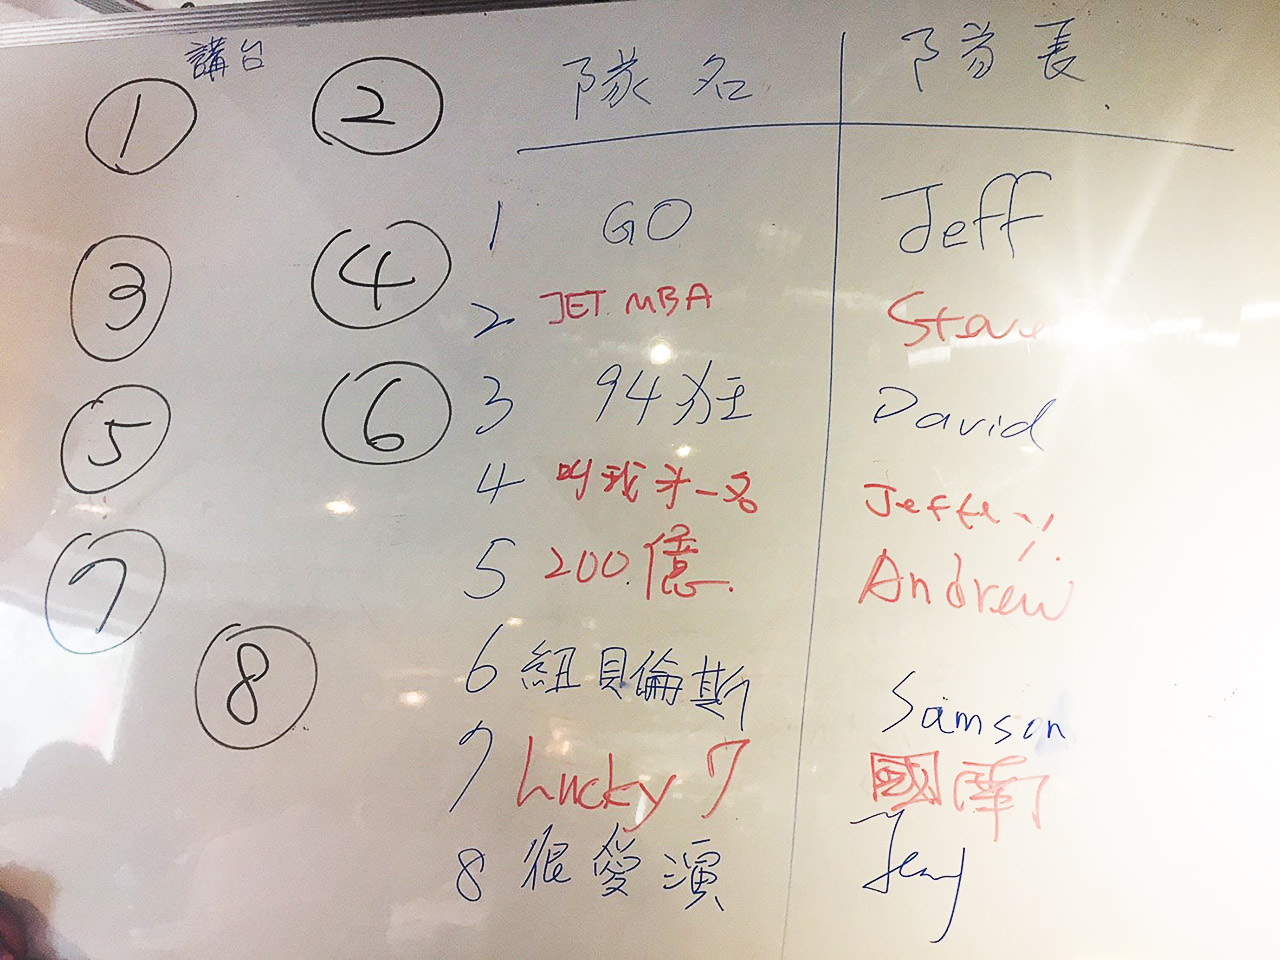 講台
① ②
③ ④
⑤ ⑥
⑦
⑧
隊名 隊長
1 GO Jeff
2 JET MBA Steve
3 94狂 David
4 叫我第一名 Jeffery
5 200億 Andrew
6 紐貝倫斯 Samson
7 Lucky 7 國南
8 很愛演